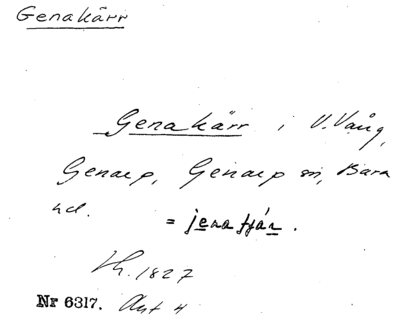 Genakärr
Genakärr i V. Vång,
Genarp, Genarp sn, Bara
hd. = jena tjár.
Lh. 1827
Nr 6317. Ant 4